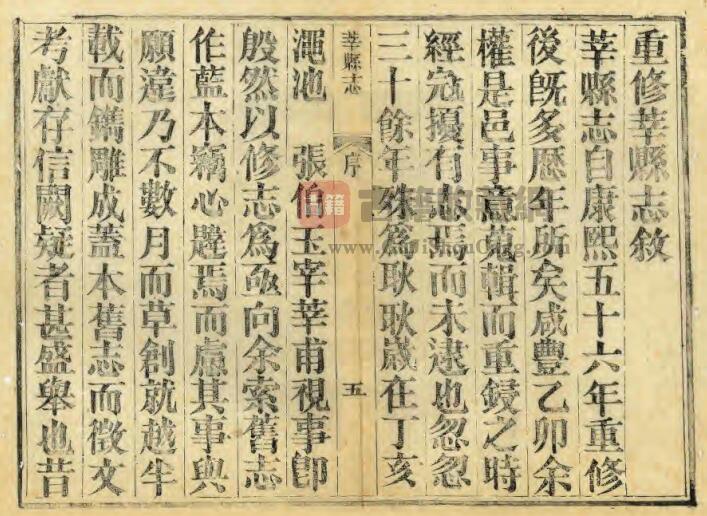 重修莘縣志敘
莘縣志自康熙五十六年重修
後旣多歴年所矣咸豐乙卯余
權是邑事意蒐輯而重鋟之時
經寇擾有志焉而未逮也忽忽
三十餘年殊爲耿耿歲在丁亥
莘縣志 序 五
澠池 張伯玉宰莘甫視事卽
殷然以修志爲亟向余索舊志
作藍本竊心韙焉而慮其事與
願違乃不數月而草創就越半
載而鐫雕成蓋本舊志而徵文
考獻存信闕疑者甚盛舉也昔
古籍
www.gujishuCang.com